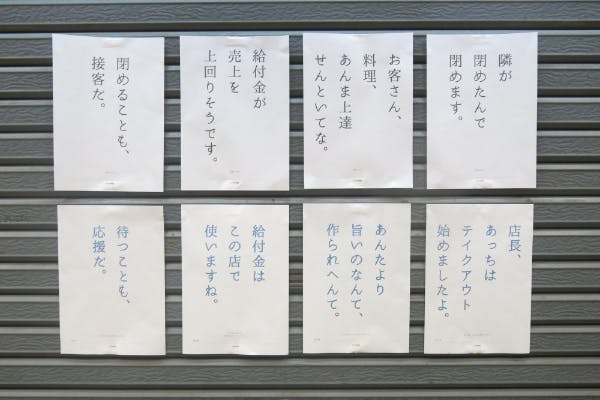 隣が
閉めたんで
閉めます。
お客さん、
料理、
あんま上達
せんといてな。
給付金が
売上を
上回りそうです。
閉めることも、
接客だ。
店長、
あっちは
テイクアウト
始めましたよ。
あんたより
旨いのなんて、
作られへんて。
給付金は
この店で
使いますね。
待つことも、
応援だ。